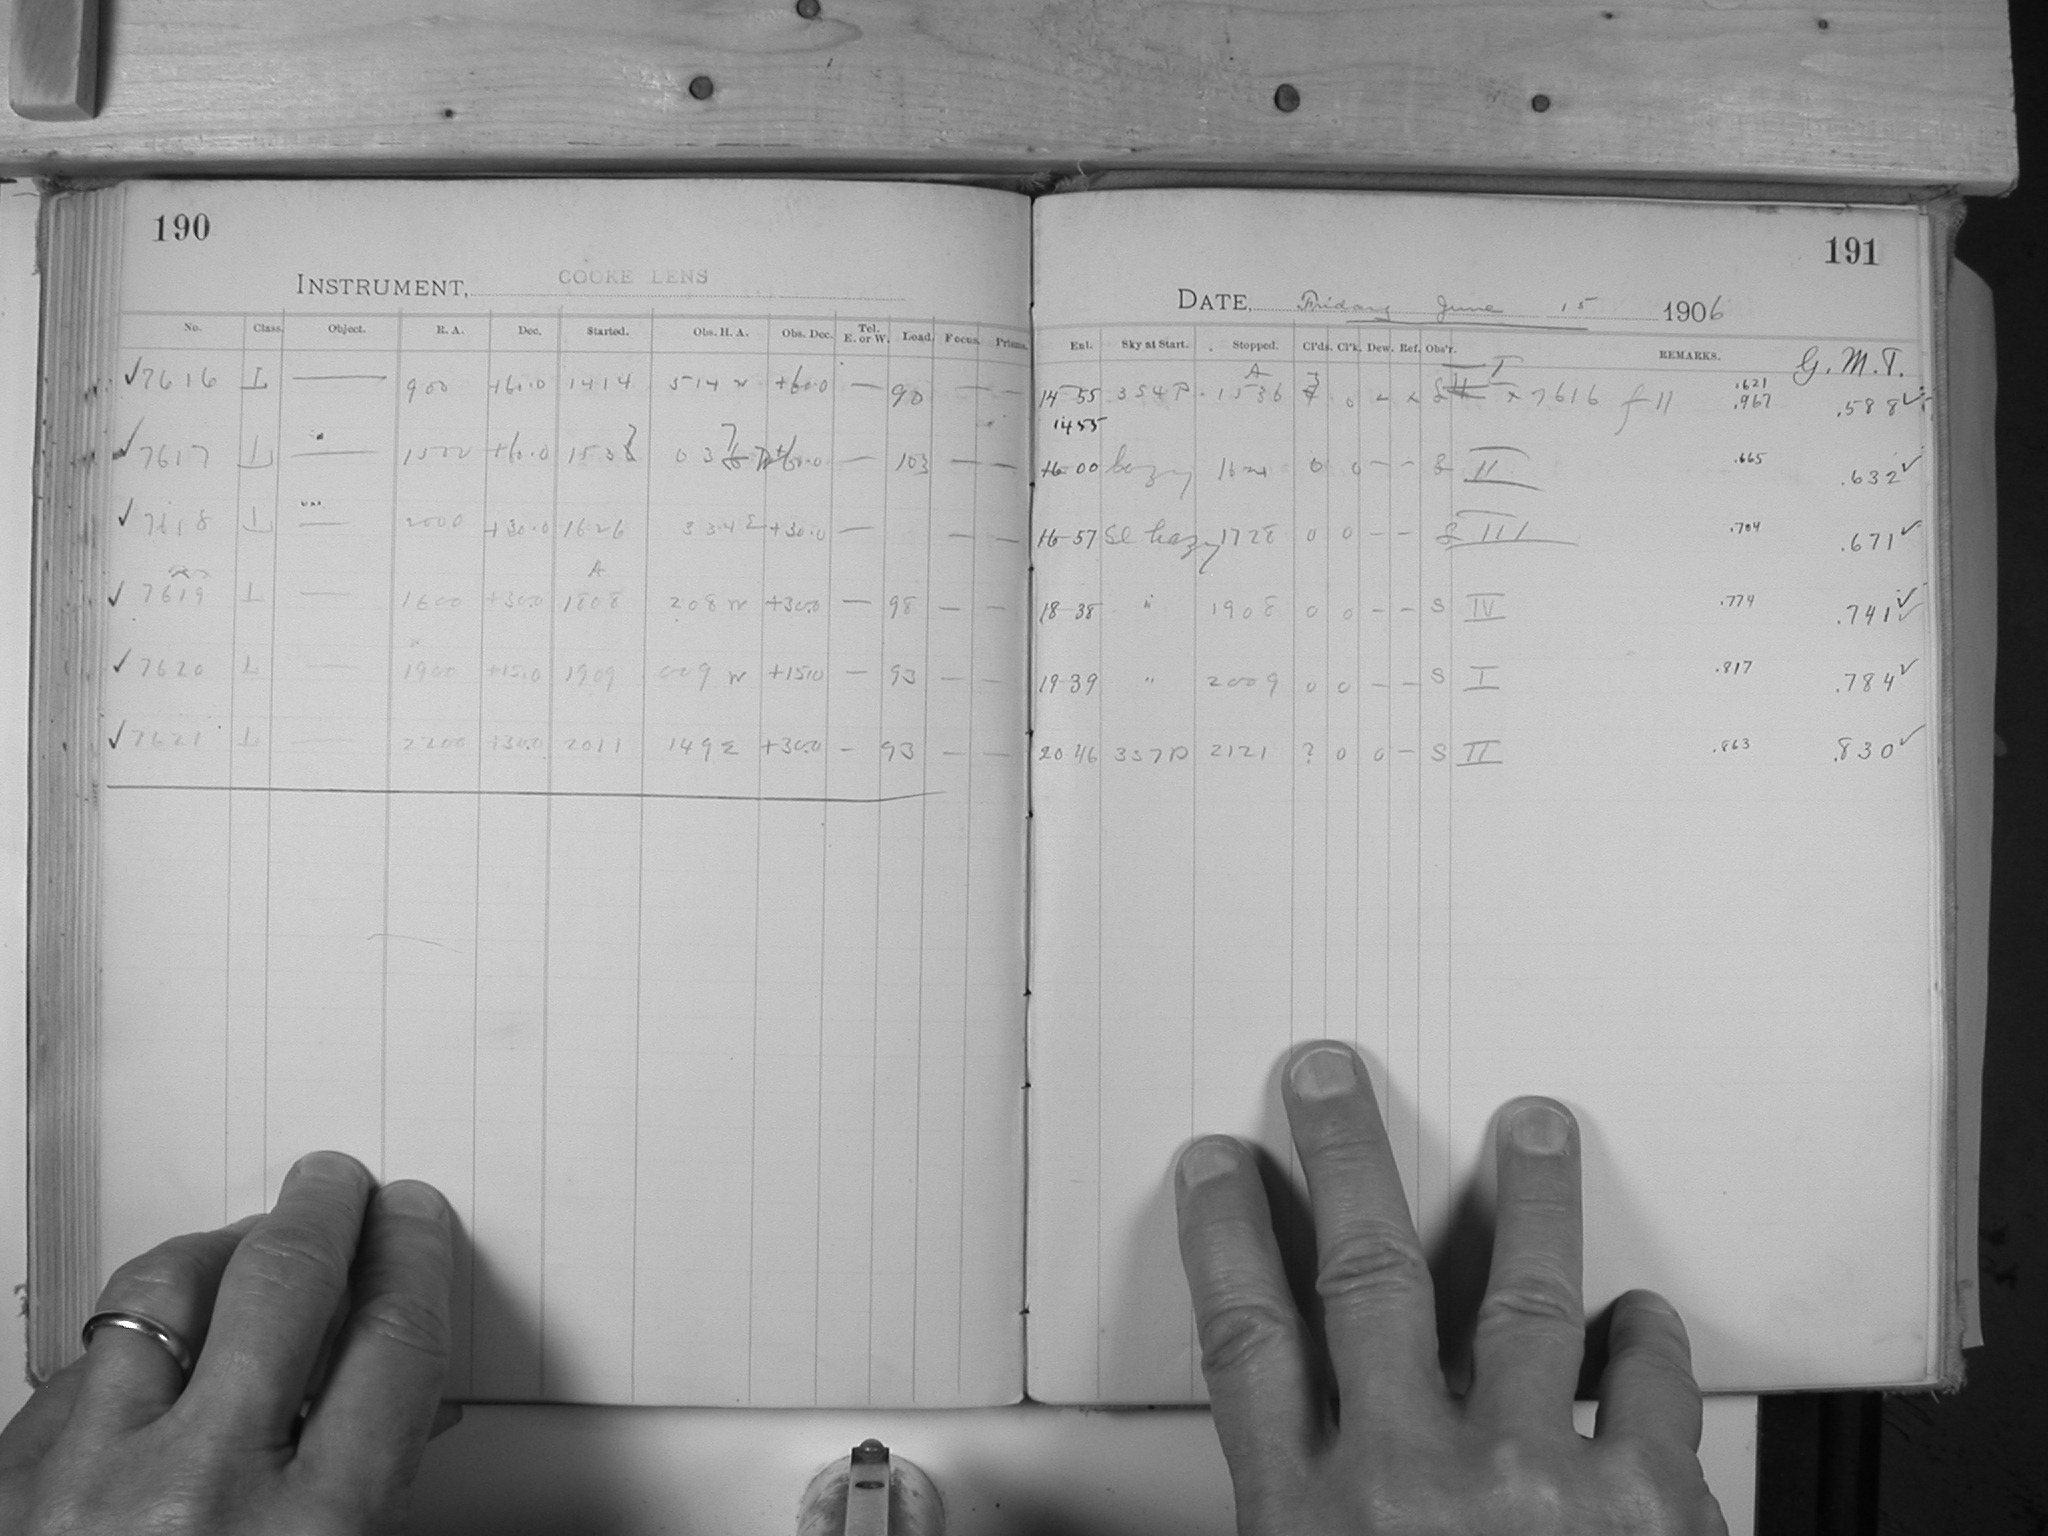 190
INSTRUMENT, COOKE LENS
No. Class. Object. R. A. Dec. Started. Obs. H. A. Obs. Dec. Tel. E. or W. Load. Focus. Prisms.
✓7616 L — 900 +60.0 1414 514 W +60.0 — 90 — —
✓7617 L — 1500 +60.0 1537 0 37 W +60.0 — 103 — —
✓7618 L — 2000 +30.0 1626 334 E +30.0 — — —
A
✓7619 L — 1600 +30.0 1808 208 W +30.0 — 98 — —
✓7620 L — 1900 +15.0 1909 009 W +15.0 — 93 — —
✓7621 L — 2200 +30.0 2011 149 E +30.0 — 93 — —
191
DATE, Friday June 15 1906
Ent. Sky at Start. Stopped. Cl'ds. Cl'k. Dew. Ref. Obs'r. REMARKS. G. M. T.
A I .621
14 55 354 P. 1536 0 - x x 7616 f 11 .967 .588✓
1455
16 00 hazy 0 0 - - II .665 .632✓
16 57 Sl hazy 1728 0 0 - - III .704 .671✓
18 38 " 1908 0 0 - - S IV .774 .741✓
19 39 " 2009 0 0 - - S I .817 .784✓
20 46 357 P 2121 ? 0 0 - S II .863 .830✓